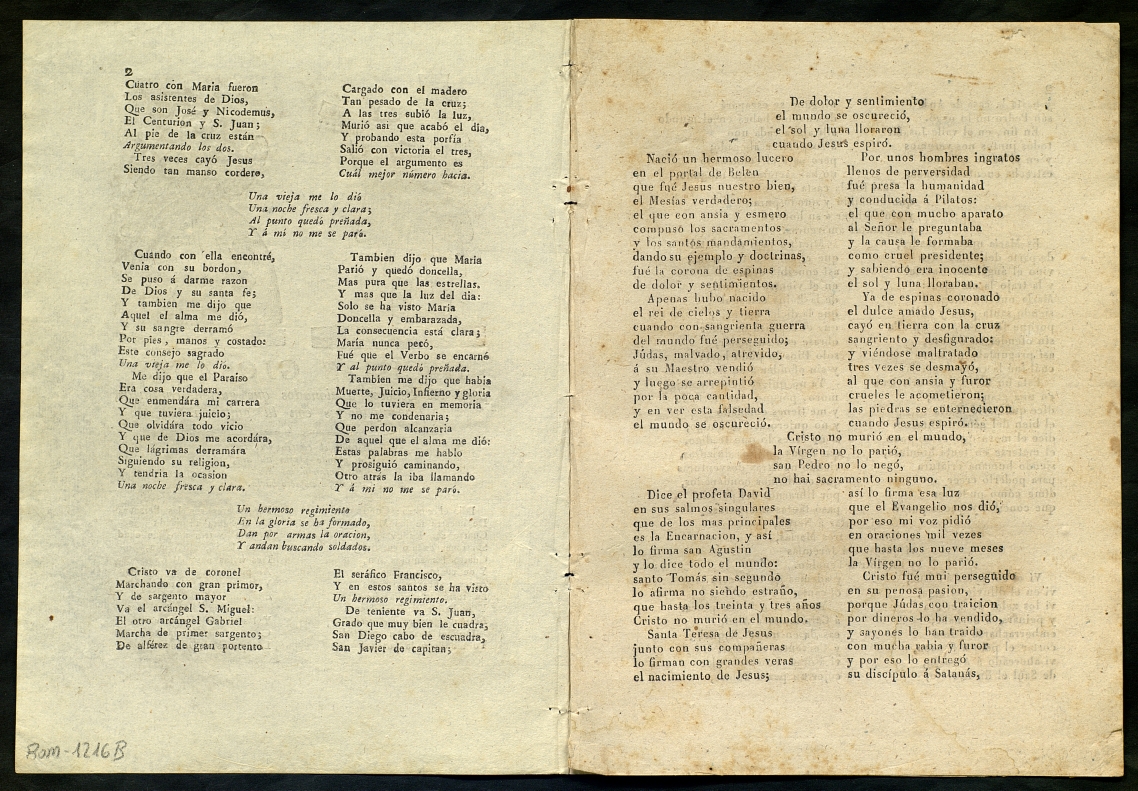 2
Cuatro con Maria fueron
Los asistentes de Dios,
Que son José y Nicodemus,
El Centurion y S. Juan;
Al pie de la cruz están
Argumentando los dos.
Tres veces cayó Jesus
Siendo tan manso cordero,
Cargado con el madero
Tan pesado de la cruz;
A las tres subió la luz,
Murió asi que acabó el dia,
Y probando esta porfía
Salió con victoria el tres,
Porque el argumento es
Cuál mejor número hacia.
Una vieja me lo dió
Una noche fresca y clara;
Al punto quedó preñada,
Y á mí no me se paró.
Cuando con ella encontré,
Venia con su bordon,
Se puso á darme razon
De Dios y su santa fe;
Y tambien me dijo que
Aquel el alma me dió,
Y su sangre derramó
Por pies, manos y costado:
Este consejo sagrado
Una vieja me lo dio.
Me dijo que el Paraiso
Era cosa verdadera,
Que enmendára mi carrera
Y que tuviera juicio;
Que olvidára todo vicio
Y que de Dios me acordára,
Que lágrimas derramára
Siguiendo su religion,
Y tendria la ocasion
Una noche fresca y clara.
Tambien dijo que Maria
Parió y quedó doncella,
Mas pura que las estrellas.
Y mas que la luz del dia:
Solo se ha visto Maria
Doncella y embarazada,
La consecuencia está clara;
María nunca pecó,
Fué que el Verbo se encarnó
Y al punto quedó preñada.
Tambien me dijo que habia
Muerte, Juicio, Infierno y gloria
Que lo tuviera en memoria
Y no me condenaria;
Que perdon alcanzaria
De aquel que el alma me dió:
Estas palabras me hablo
Y prosiguió caminando,
Otro atrás la iba llamando
Y á mi no me se paró.
Un hermoso regimiento
En la gloria se ha formado,
Dan por armas la oracion,
Y andan buscando soldados.
Cristo va de coronel
Marchando con gran primor,
Y de sargento mayor
Va el arcángel S. Miguel:
El otro arcángel Gabriel
Marcha de primer sargento;
De alférez de gran portento
El seráfico Francisco,
Y en estos santos se ha visto
Un hermoso regimiento.
De teniente va S. Juan,
Grado que muy bien le cuadra,
San Diego cabo de escuadra,
San Javier de capitan;
Rom-1216B
De dolor y sentimiento
el mundo se oscureció,
el sol y luna lloraron
cuando Jesus espiró.
Nació un hermoso lucero
en el portal de Belen
que fué Jesus nuestro bien,
el Mesías verdadero;
el que con ansia y esmero
compuso los sacramentos
y los santos mandamientos,
dando su ejemplo y doctrinas,
fué la corona de espinas
de dolor y sentimientos.
Apenas hubo nacido
el rei de cielos y tierra
cuando con sangrienta guerra
del mundo fué perseguido;
Júdas, malvado, atrevido,
á su Maestro vendió
y luego se arrepintió
por la poca cantidad,
y en ver esta falsedad
el mundo se oscureció.
Por unos hombres ingratos
llenos de perversidad
fué presa la humanidad
y conducida á Pilatos:
el que con mucho aparato
al Señor le preguntaba
y la causa le formaba
como cruel presidente;
y sabiendo era inocente
el sol y luna lloraban.
Ya de espinas coronado
el dulce amado Jesus,
cayó en tierra con la cruz
sangriento y desfigurado:
y viéndose maltratado
tres veces se desmayó,
al que con ansia y furor
crueles le acometieron;
las piedras se enternecieron
cuando Jesus espiró.
Cristo no murió en el mundo,
la Vírgen no lo parió,
san Pedro no lo negó,
no hai sacramento ninguno.
Dice el profeta David
en sus salmos singulares
que de los mas principales
es la Encarnacion, y así
lo firma san Agustin
y lo dice todo el mundo:
santo Tomás sin segundo
lo afirma no siendo estraño,
que hasta los treinta y tres años
Cristo no murió en el mundo.
Santa Teresa de Jesus
junto con sus compañeras
lo firman con grandes veras
el nacimiento de Jesus;
así lo firma esa luz
que el Evangelio nos dió,
por eso mi voz pidió
en oraciones mil veces
que hasta los nueve meses
la Vírgen no lo parió.
Cristo fué mui perseguido
en su penosa pasion,
porque Júdas con traicion
por dineros lo ha vendido,
y sayones lo han traido
con mucha rabia y furor
y por eso lo entregó
su discípulo á Satanás,